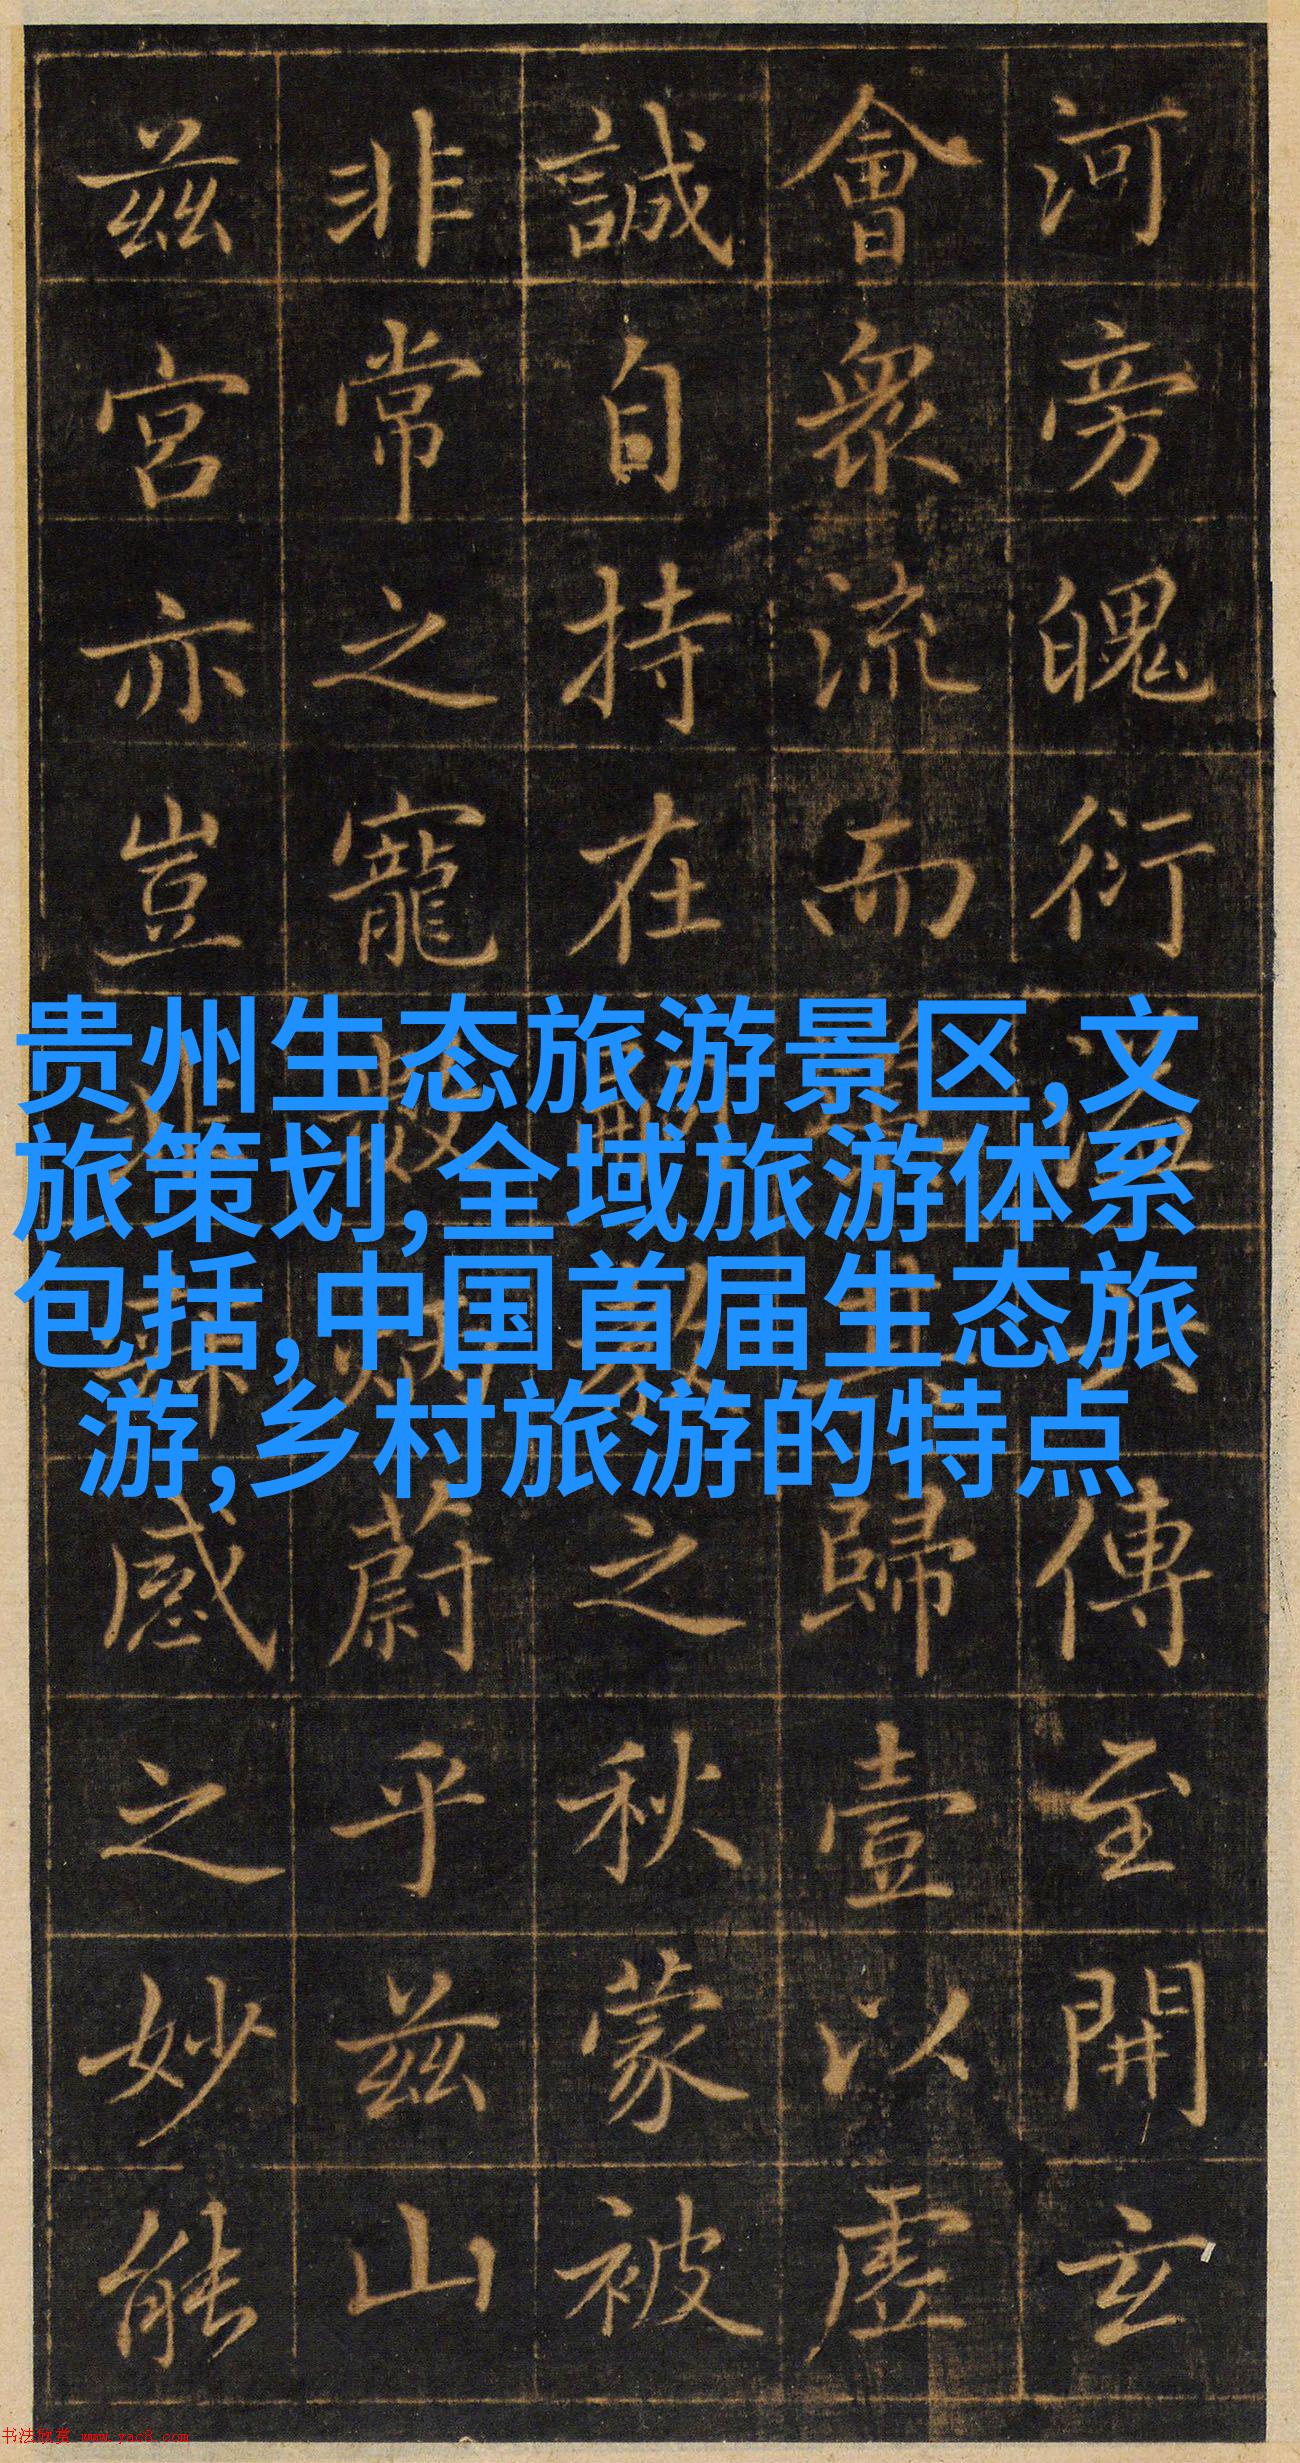 河旁魄衍傳至開玄
會衆流而歸壹以虛
誠自持在之秋蒙被
非常之寵蔚乎茲山
茲宮亦豈感之妙能
贵州生态旅游景区,文
旅策划,全域旅游体系
包括,中国首届生态旅
游,乡村旅游的特点
书法欣赏 www.yac8.com